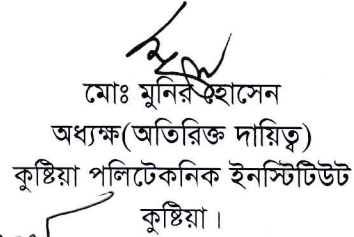 মোঃ মুনির হোসেন
অধ্যক্ষ(অতিরিক্ত দায়িত্ব)
কুষ্টিয়া পলিটেকনিক ইনস্টিটিউট
কুষ্টিয়া।